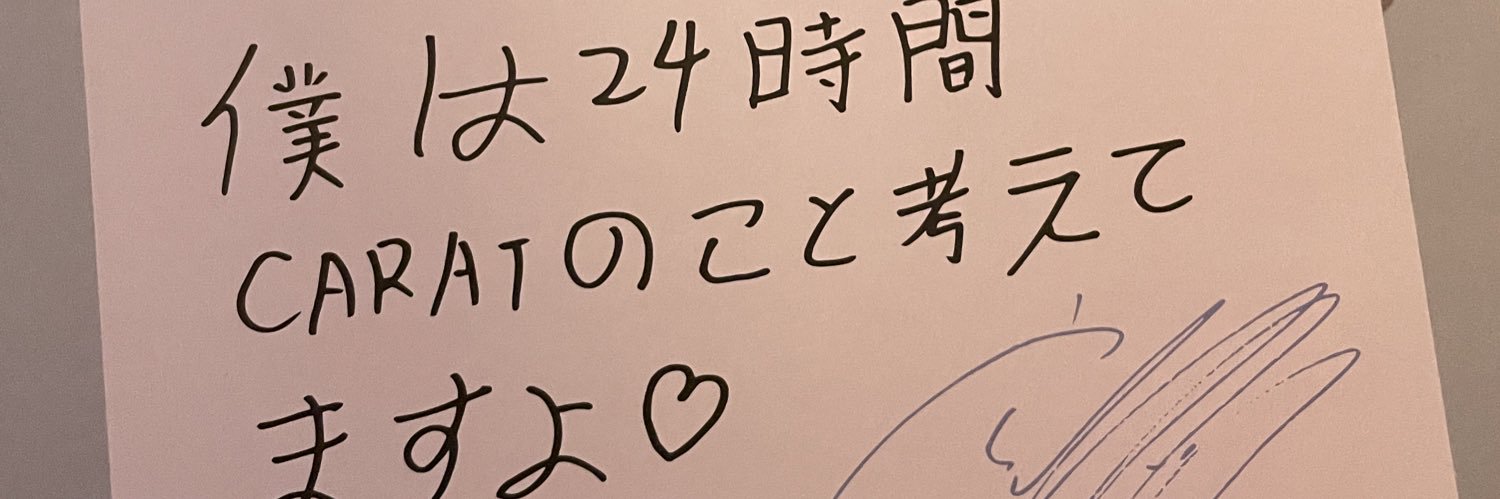 僕は24時間
CARATのこと考えて
ますよ♡